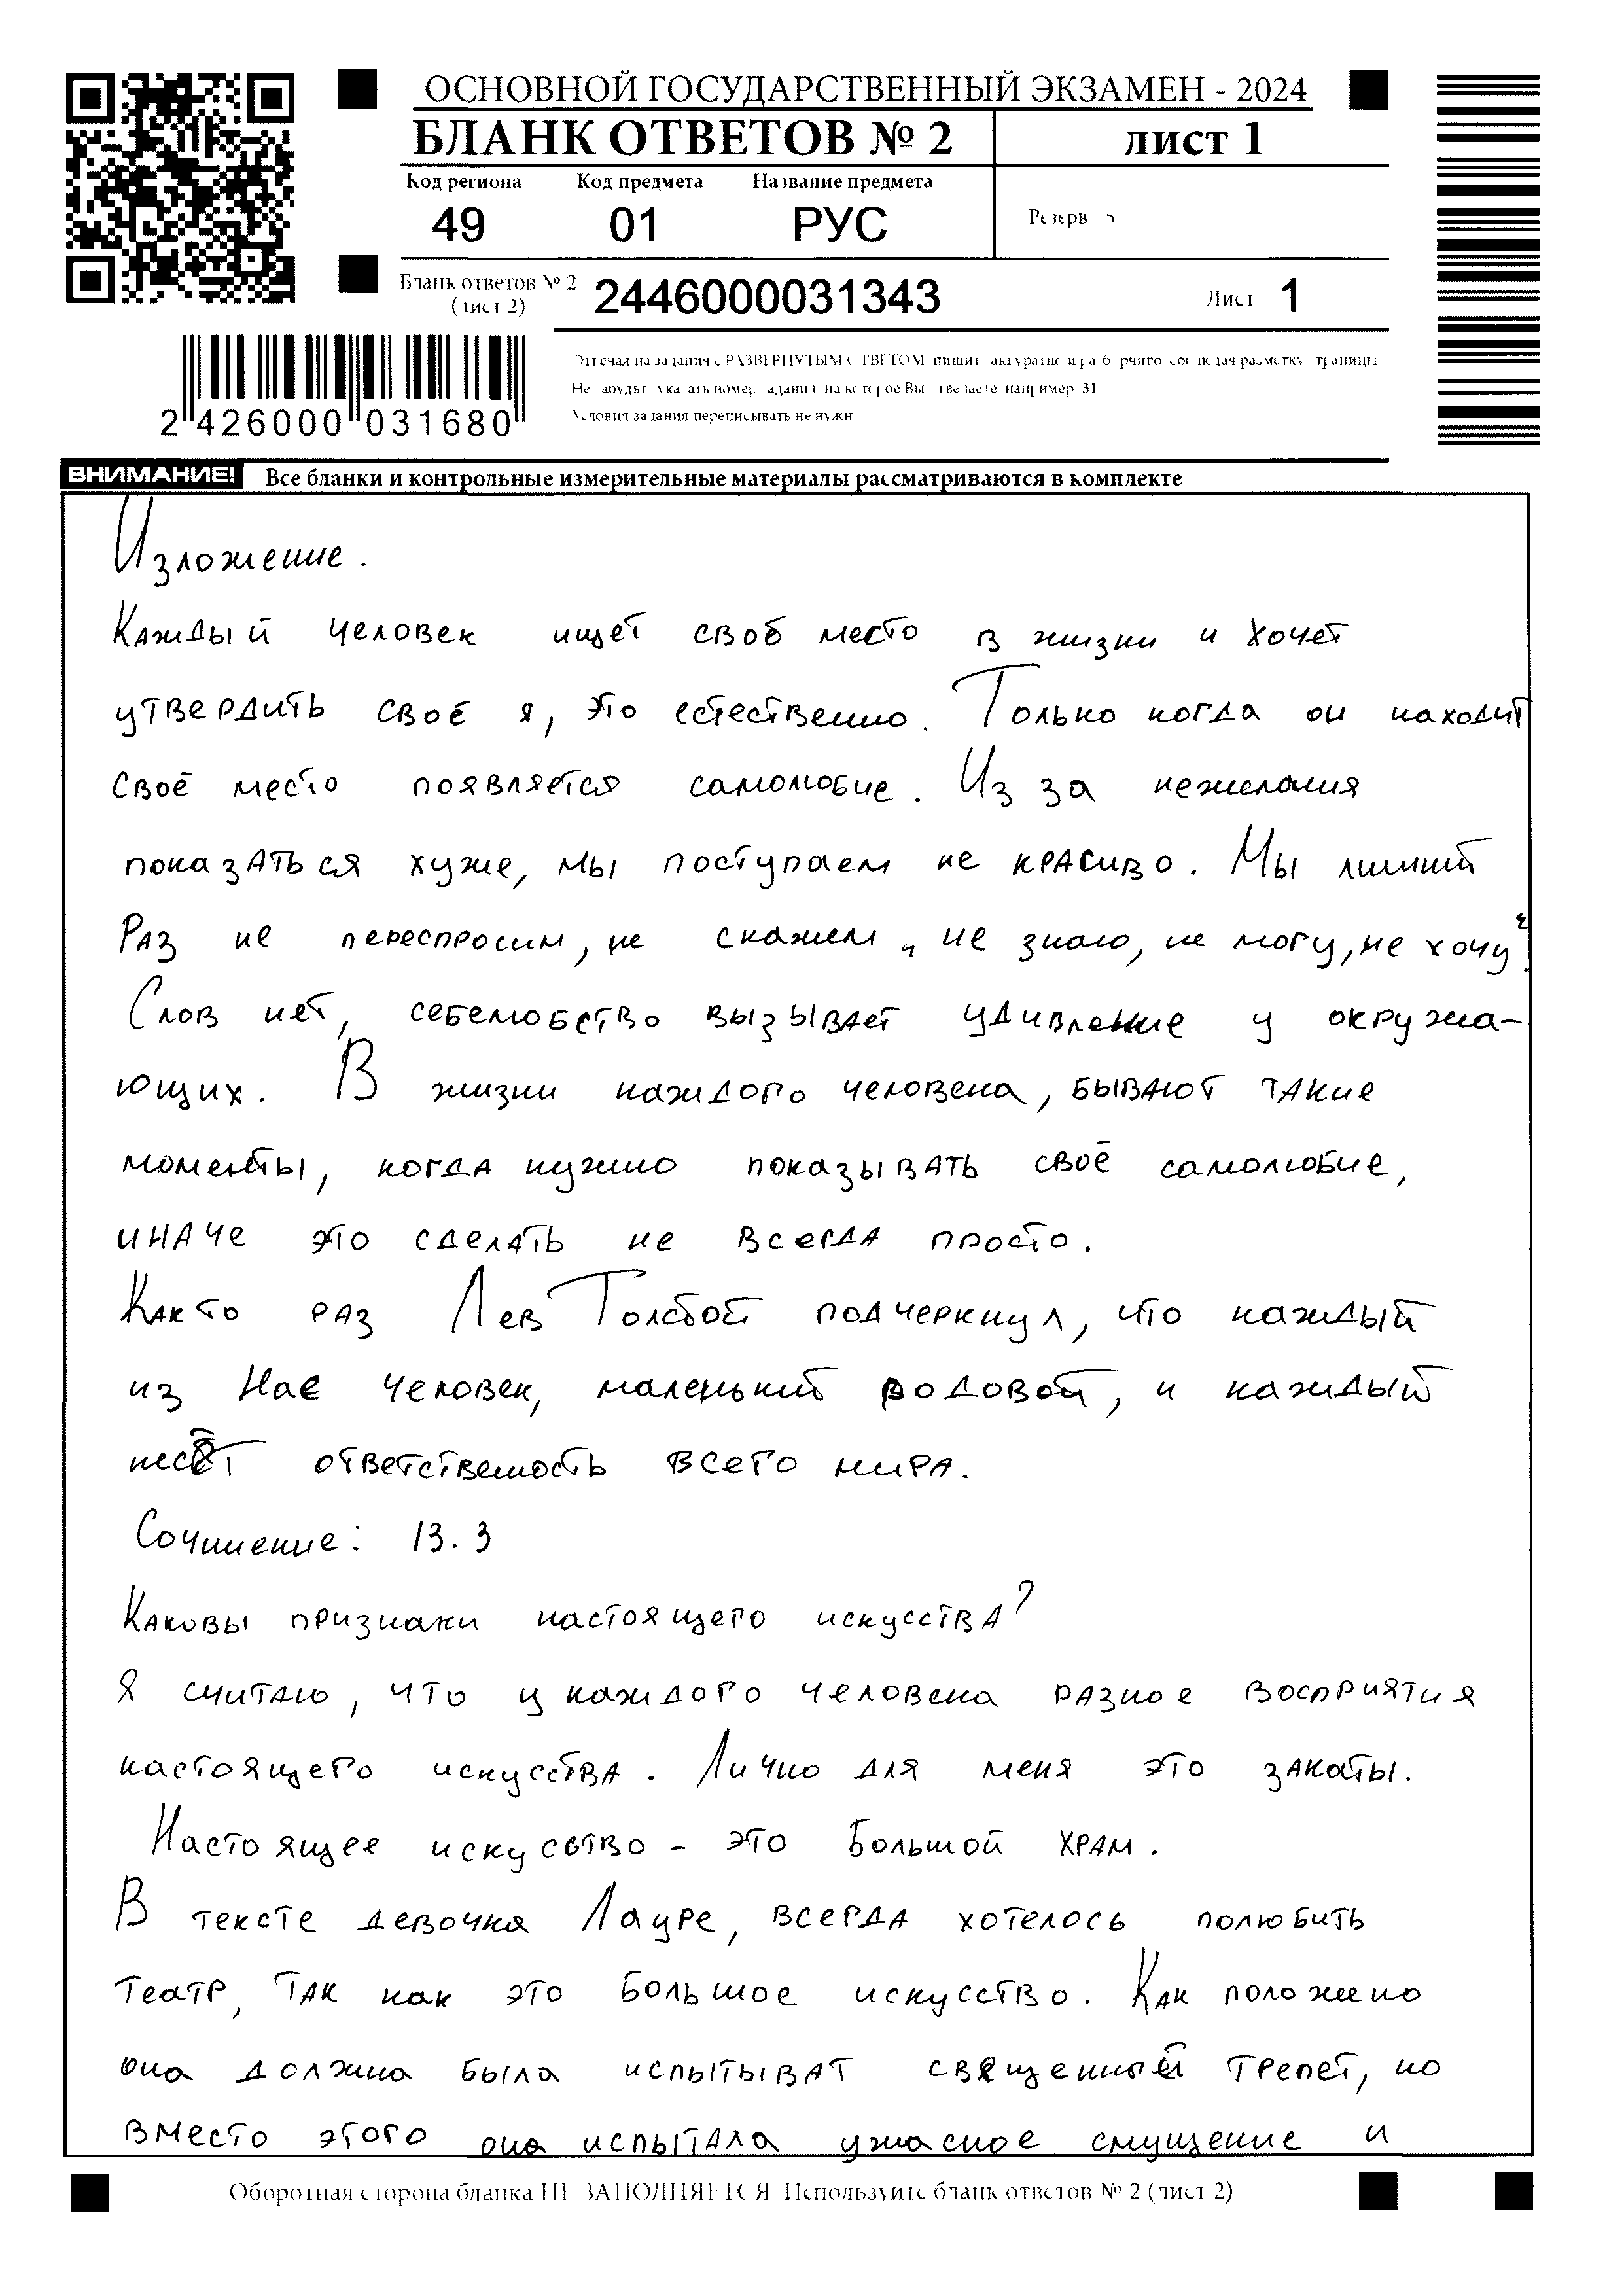 ОСНОВНОЙ ГОСУДАРСТВЕННЫЙ ЭКЗАМЕН - 2024
БЛАНК ОТВЕТОВ № 2
лист 1
Код региона Код предмета Название предмета
49 01 РУС
Резерв
Бланк ответов № 2 (лист 2) 2446000031343
Лист 1
2 426000 031680
Условия задания переписывать не нужн
ВНИМАНИЕ! Все бланки и контрольные измерительные материалы рассматриваются в комплекте
Изложение.
Каждый человек ищет своё место в жизни и хочет
утвердить своё я, это естественно. Только когда он находит
своё место появляется самолюбие. Из за нежелания
показаться хуже, мы поступаем не красиво. Мы лишний
раз не переспросим, не скажем „не знаю, не могу, не хочу“.
Слов нет, себелюбство вызывает удивление у окружа-
ющих. В жизни каждого человека, бывают такие
моменты, когда нужно показывать своё самолюбие,
иначе это сделать не всегда просто.
Как то раз Лев Толстой подчеркнул, что каждый
из нас человек, маленький родовой, и каждый
несёт ответственность всего мира.
Сочинение: 13.3
Каковы признаки настоящего искусства?
Я считаю, что у каждого человека разное восприятия
настоящего искусства. Лично для меня это закаты.
Настоящее искусство - это большой храм.
В тексте девочка Лауре, всегда хотелось полюбить
театр, так как это большое искусство. Как положено
она должна была испытыват священный трепет, но
вместо этого она испытала ужасное смущение и
Оборотная сторона бланка НЕ ЗАПОЛНЯЕТСЯ. Используйте бланк ответов № 2 (лист 2)